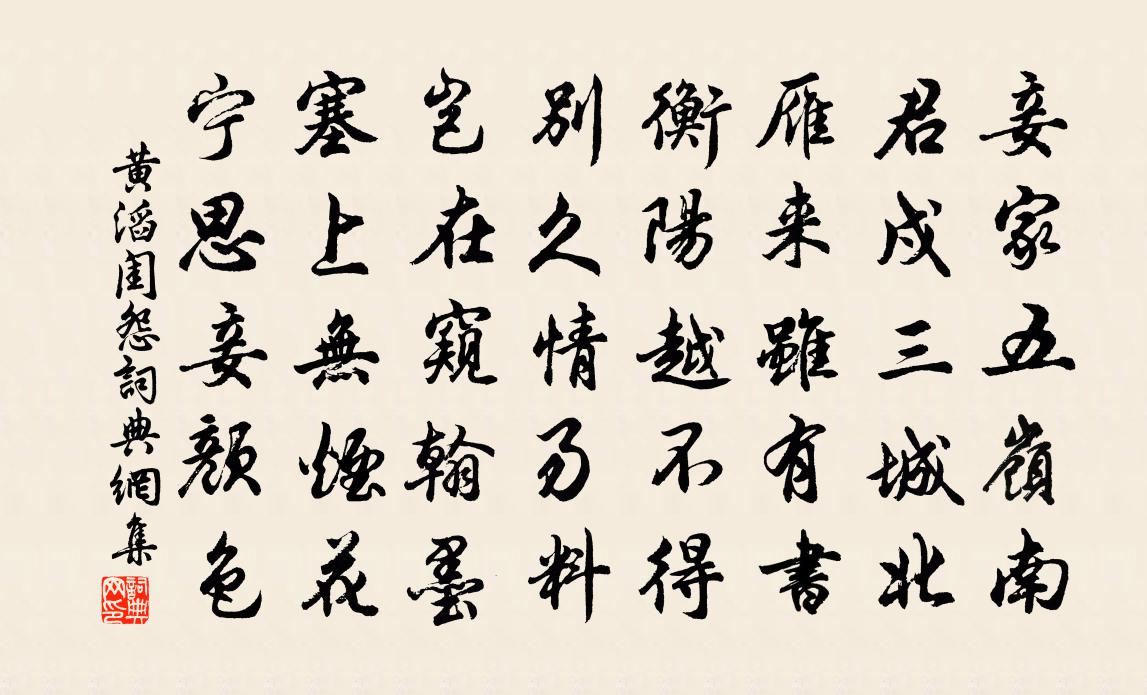 妾家五嶺南
君戍三城北
雁来雖有書
衡陽越不得
別久情易料
豈在窺翰墨
塞上無煙花
宁思妾顏色
黄滔閨怨詞典網集
詞典网印